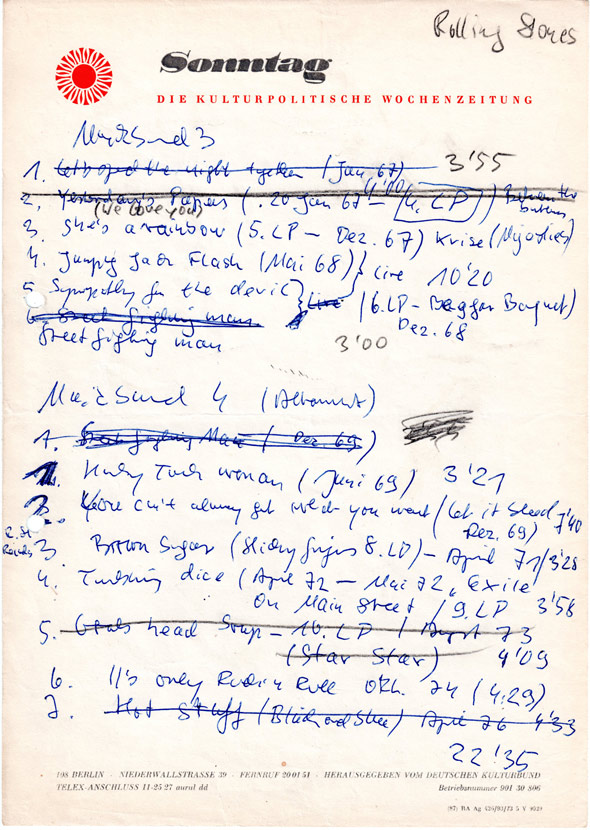 Rolling Stones
Sonntag
DIE KULTURPOLITISCHE WOCHENZEITUNG
Musikbund 3
1. Let's spend the night together (Jan. 67) 3'55
2. Yesterday's Papers (. 20 Jan 67 – 4'00 (4. LP)) Between the buttons
(We love you)
3. She's a rainbow (5. LP – Dez. 67) Krise (Mijorties)
4. Jumping Jack Flash (Mai 68) } Live 10'20
5. Sympathy for the devil } Live (6. LP – Beggar Banquet)
6. Street fighting man Dez. 68
Street fighting man 3'00
4 (Altamont)
1. Street fighting Man (Dez. 69)
1. Honky Tonk woman (Juni 69) 3'21
2. You can't always get what you want (Let it bleed
Dez. 69) 7'40
R. St.
Records
3 Brown Sugar (Sticky fingers 8. LP) – April 71/3'28
4. Tumbling dice (April 72 – Mai 72, Exile
On Main Street / 9. LP 3'58
5. Goats head Soup – 10. LP / August 73
(Star Star) 4'09
6. It's only Rock'n Roll Okt. 74 (4:29)
7. Hot Stuff (Black and blue) April 76 4'33
22'35
108 BERLIN · NIEDERWALLSTRASSE 39 · FERNRUF 20 01 51 · HERAUSGEGEBEN VOM DEUTSCHEN KULTURBUND
TELEX-ANSCHLUSS 11-25 27 aural dd Betriebsnummer 901 30 806
(87) BA Ag 426/93/73 5 V 9029